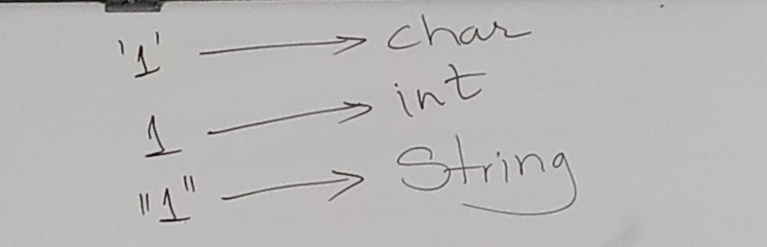 '1' → char
1 → int
"1" → String